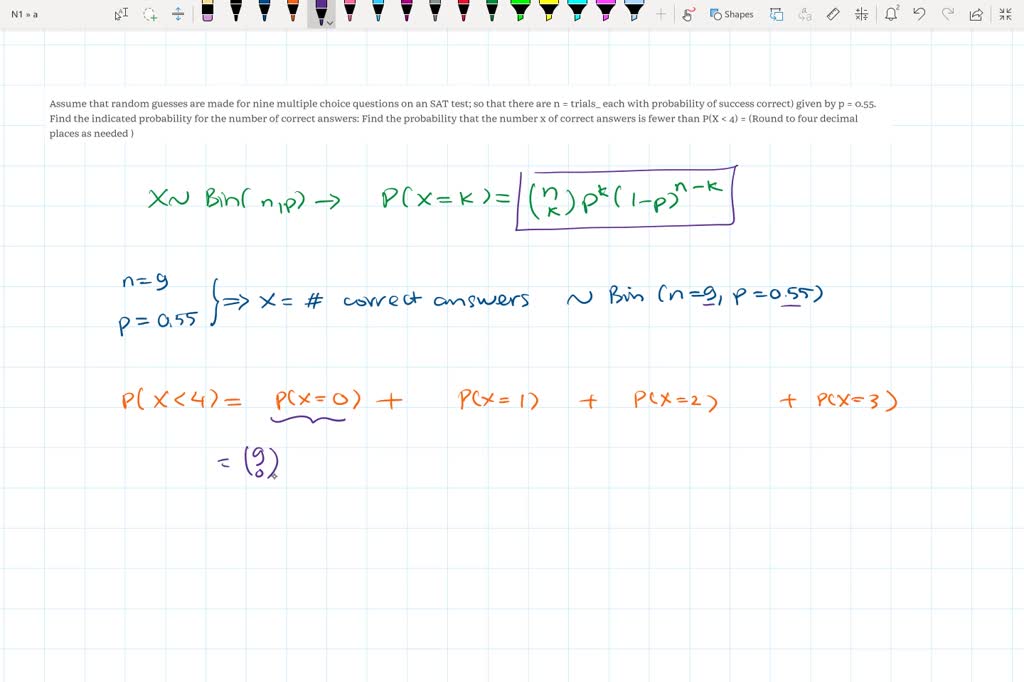 N1 » a
Shapes
2
Assume that random guesses are made for nine multiple choice questions on an SAT test; so that there are n = trials_ each with probability of success correct) given by p = 0.55.
Find the indicated probability for the number of correct answers: Find the probability that the number x of correct answers is fewer than P(X < 4) = (Round to four decimal
places as needed )
X~ Bin(n,p) → P(X=k)= (n k) p^k (1-p)^n-k
n=9
p=0.55 } => X= # correct answers ~ Bin (n=9, p=0.55)
P(X<4)= P(X=0) + P(X=1) + P(X=2) + P(X=3)
= (9 0)